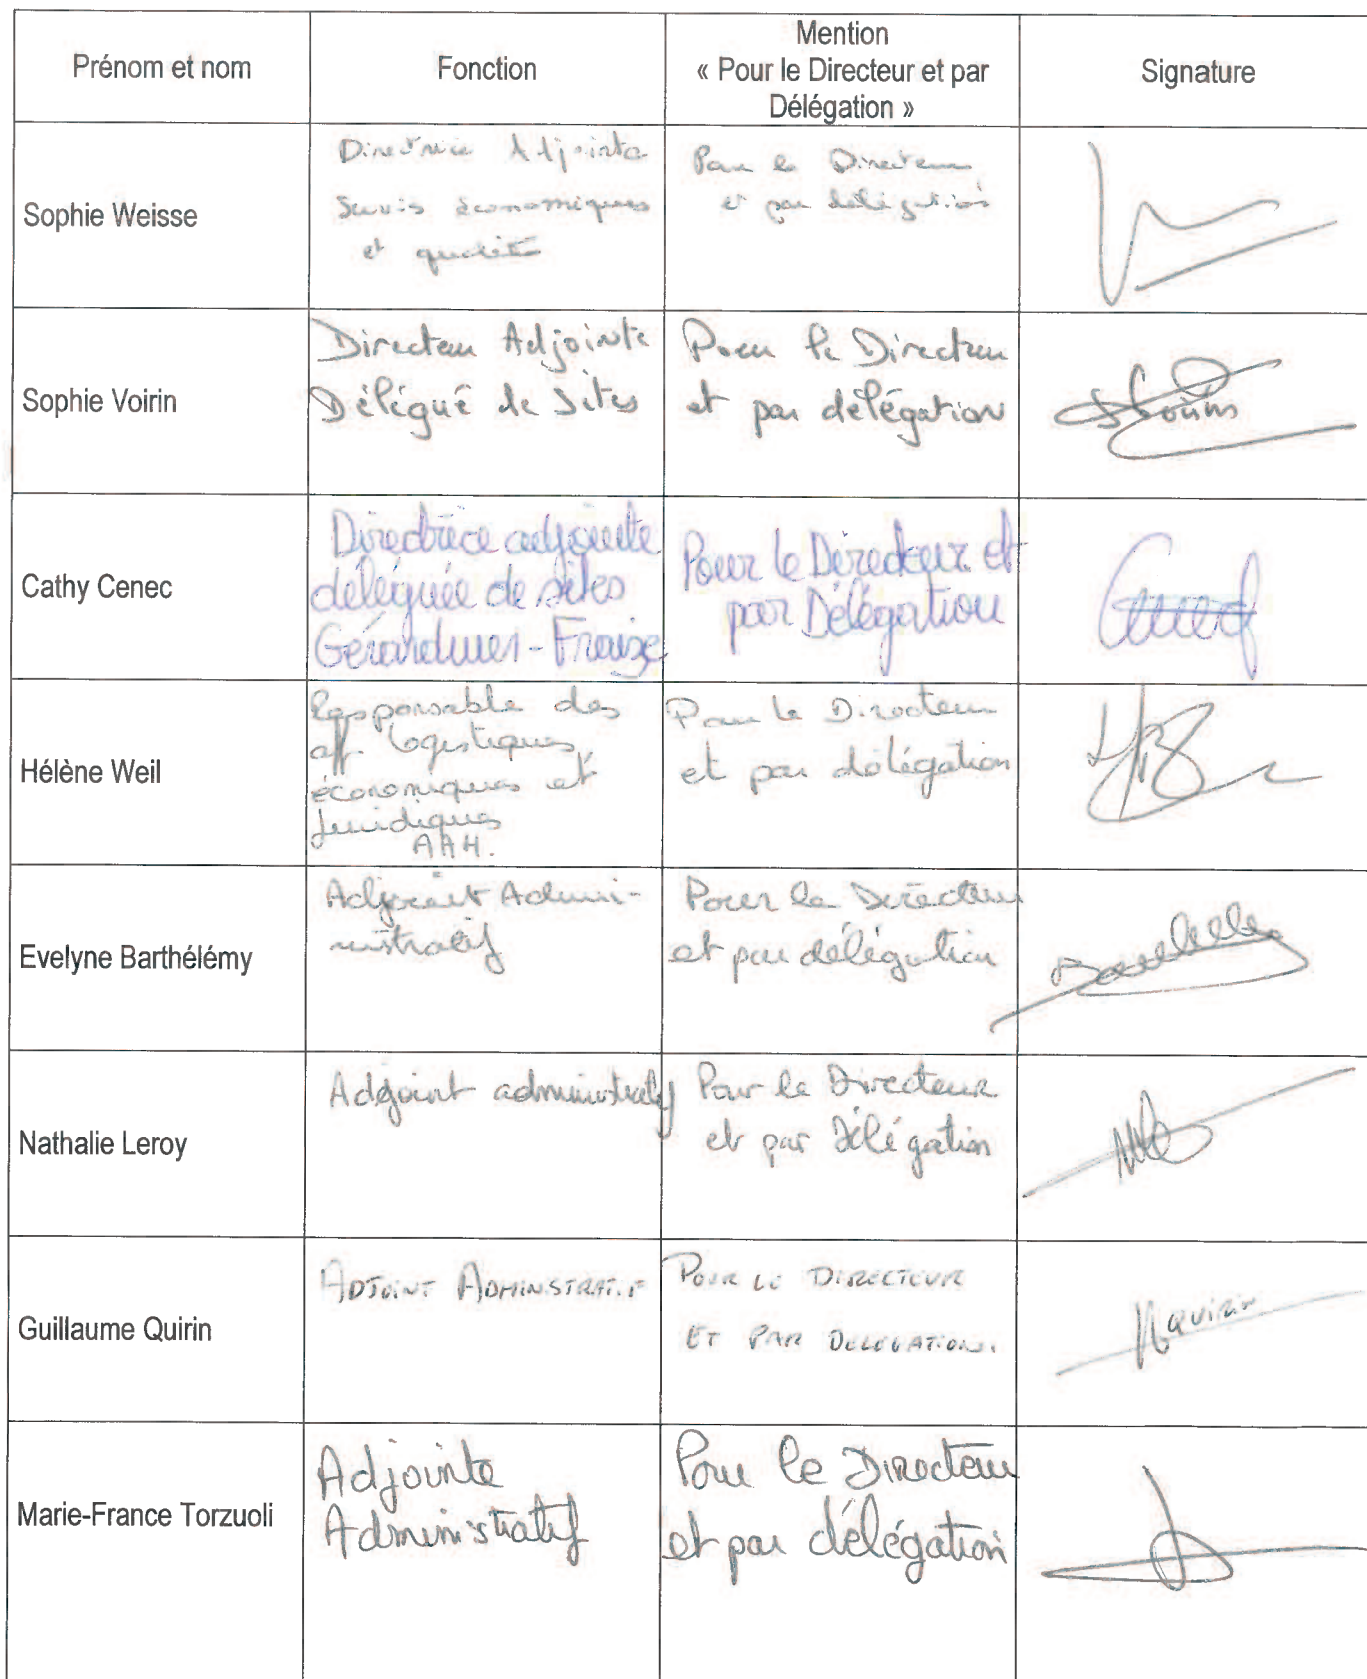 Prénom et nom
Fonction
Mention
« Pour le Directeur et par
Délégation »
Signature
Sophie Weisse
Directrice Adjointe
Services économiques
et qualité
Pour le Directeur
et par délégation
Sophie Voirin
Directeur Adjointe
Délégué de Sites
Pour le Directeur
et par délégation
Cathy Cenec
Directrice adjointe
déléguée de sites
Gérardmer - Fraize
Pour le Directeur et
par Délégation
Hélène Weil
Responsable des
aff. logistiques,
économiques et
juridiques
AAH.
Pour le Directeur
et par délégation
Evelyne Barthélémy
Adjoint Admini-
nistratif
Pour le Directeur
et par délégation
Nathalie Leroy
Adjoint administratif
Pour le Directeur
et par Délégation
Guillaume Quirin
ADJOINT ADMINSTRATIF
POUR LE DIRECTEUR
ET PAR DELEGATION.
Quirin
Marie-France Torzuoli
Adjointe
Administratif
Pour le Directeur
et par délégation